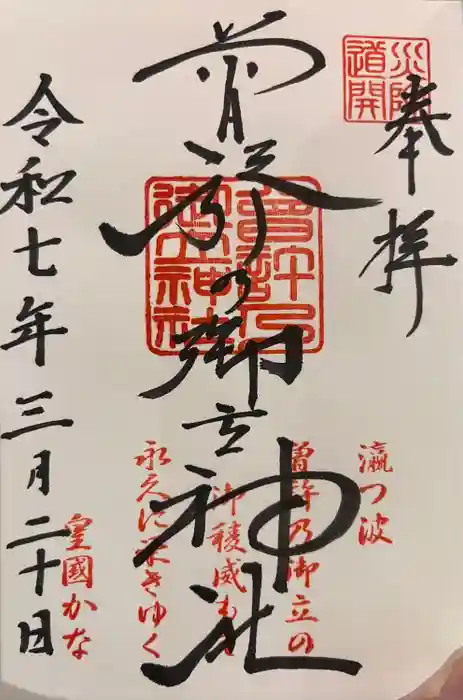 奉拝
災除
道開
曽許の御立神社
曾許乃
御立神社
瀛つ波
曽許乃御立の
御稜威
永久に栄きゆく
皇國かな
令和七年三月二十日